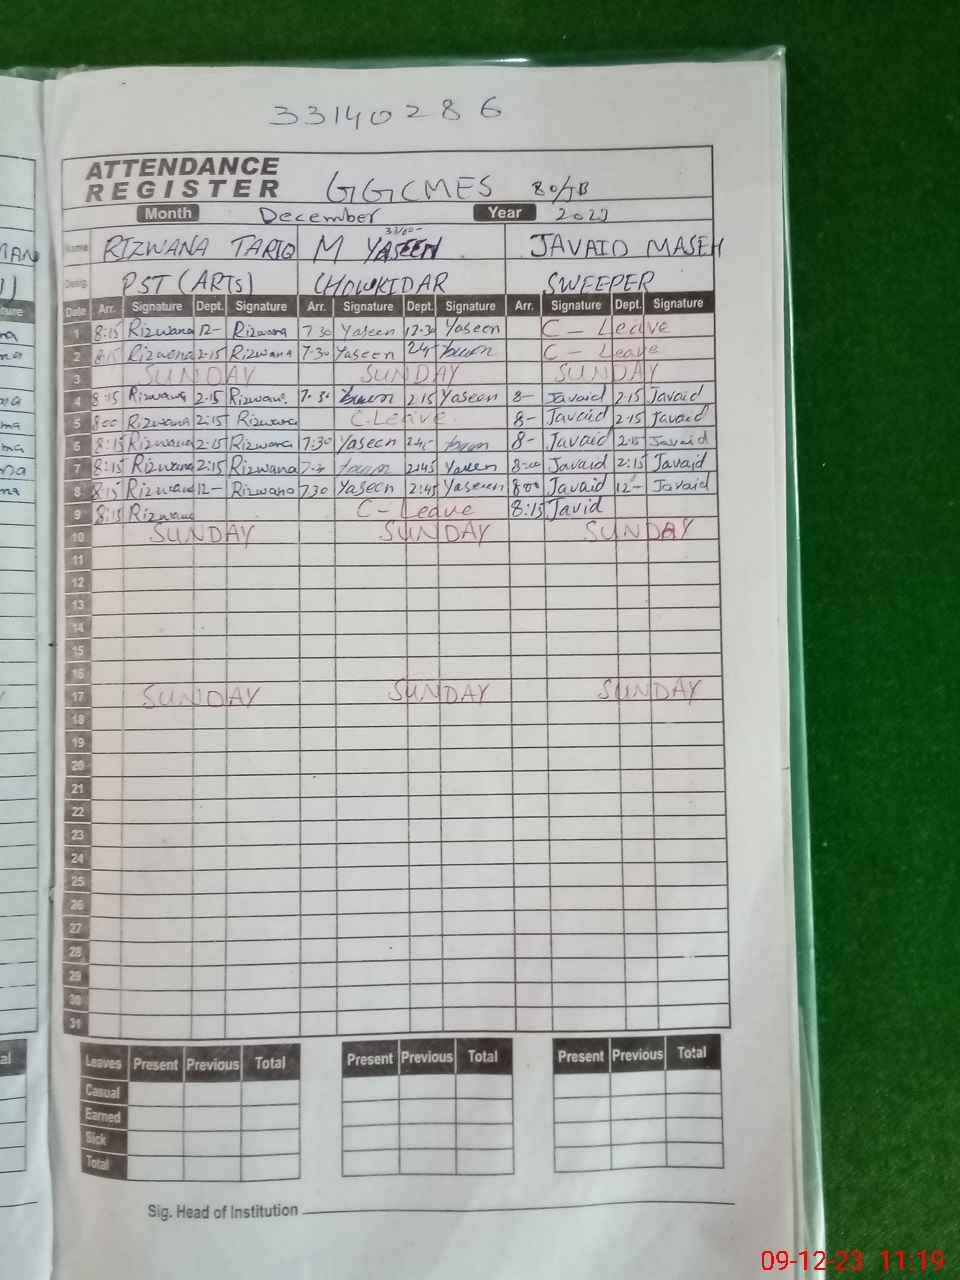 33140286
ATTENDANCE
REGISTER GGCMES 80/GB
Month December Year 2023
Name RIZWANA TARIQ M YASEEN JAVAID MASEH
Desig. PST (ARTS) CHOWKIDAR SWEEPER
Date Arr. Signature Dept. Signature Arr. Signature Dept. Signature Arr. Signature Dept. Signature
1 8:15 Rizwana 12- Rizwana 7.30 Yaseen 12.30 Yaseen C - Leave
2 8:15 Rizwana 2.15 Rizwana 7.30 Yaseen C - Leave
3 SUNDAY SUNDAY SUNDAY
4 8:15 Rizwana 2.15 Rizwana. 7.30 2.15 Yaseen 8- Javaid 2.15 Javaid
5 800 Rizwana 2:15 Rizwana C.Leave. 8- Javaid 2.15 Javaid
6 8:15 Rizwana 2.15 Rizwana 7:30 Yaseen 8- Javaid 2.15 Javaid
7 8:15 Rizwana 2:15 Rizwana 2:45 Yaseen 8-00 Javaid 2:15 Javaid
8 8:15 Rizwana 12- Rizwana 7.30 Yaseen 2:45 Yaseen 800 Javaid 12- Javaid
9 8:15 Rizwana C - Leave 8:15 Javid
10 SUNDAY SUNDAY SUNDAY
11
12
13
14
15
16
17 SUNDAY SUNDAY SUNDAY
18
19
20
21
22
23
24
25
26
27
28
29
30
31
Leaves Present Previous Total Present Previous Total Present Previous Total
Casual
Earned
Sick
Total
Sig. Head of Institution
09-12-23 11:19